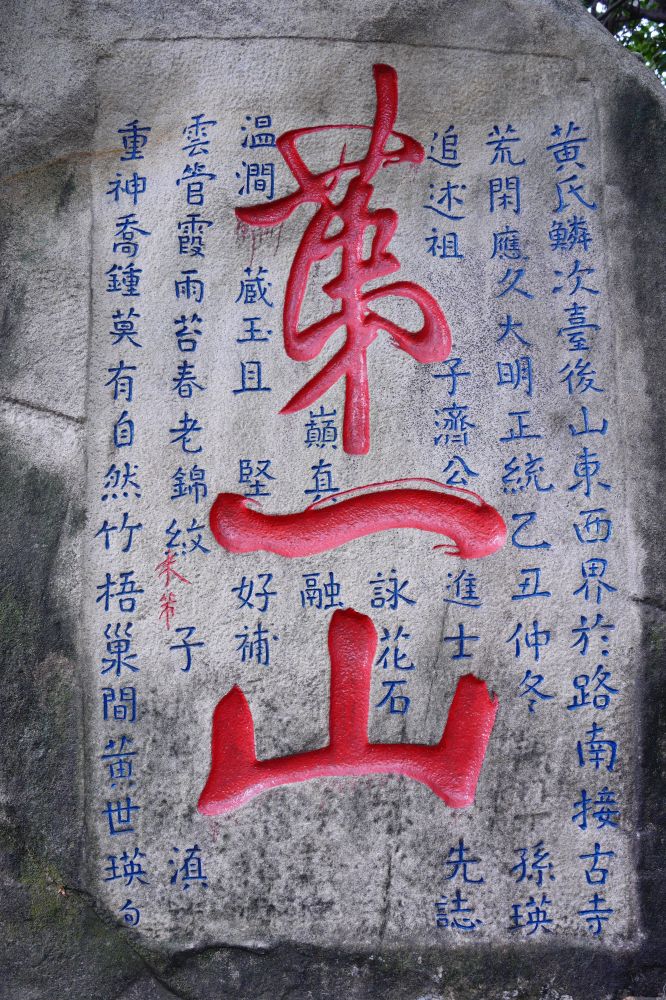 第一山
黃氏鱗次臺後山東西界於路南接古寺
荒閑應久大明正統乙丑仲冬 孫瑛
追述祖 子濟公 進士 先誌
詠花石
巔真 融
温澗 蔵玉且 堅 好補
雲管霞雨苔春老錦紋 子 滇
重神喬鍾莫有自然竹梧巢間黄世瑛
米芾